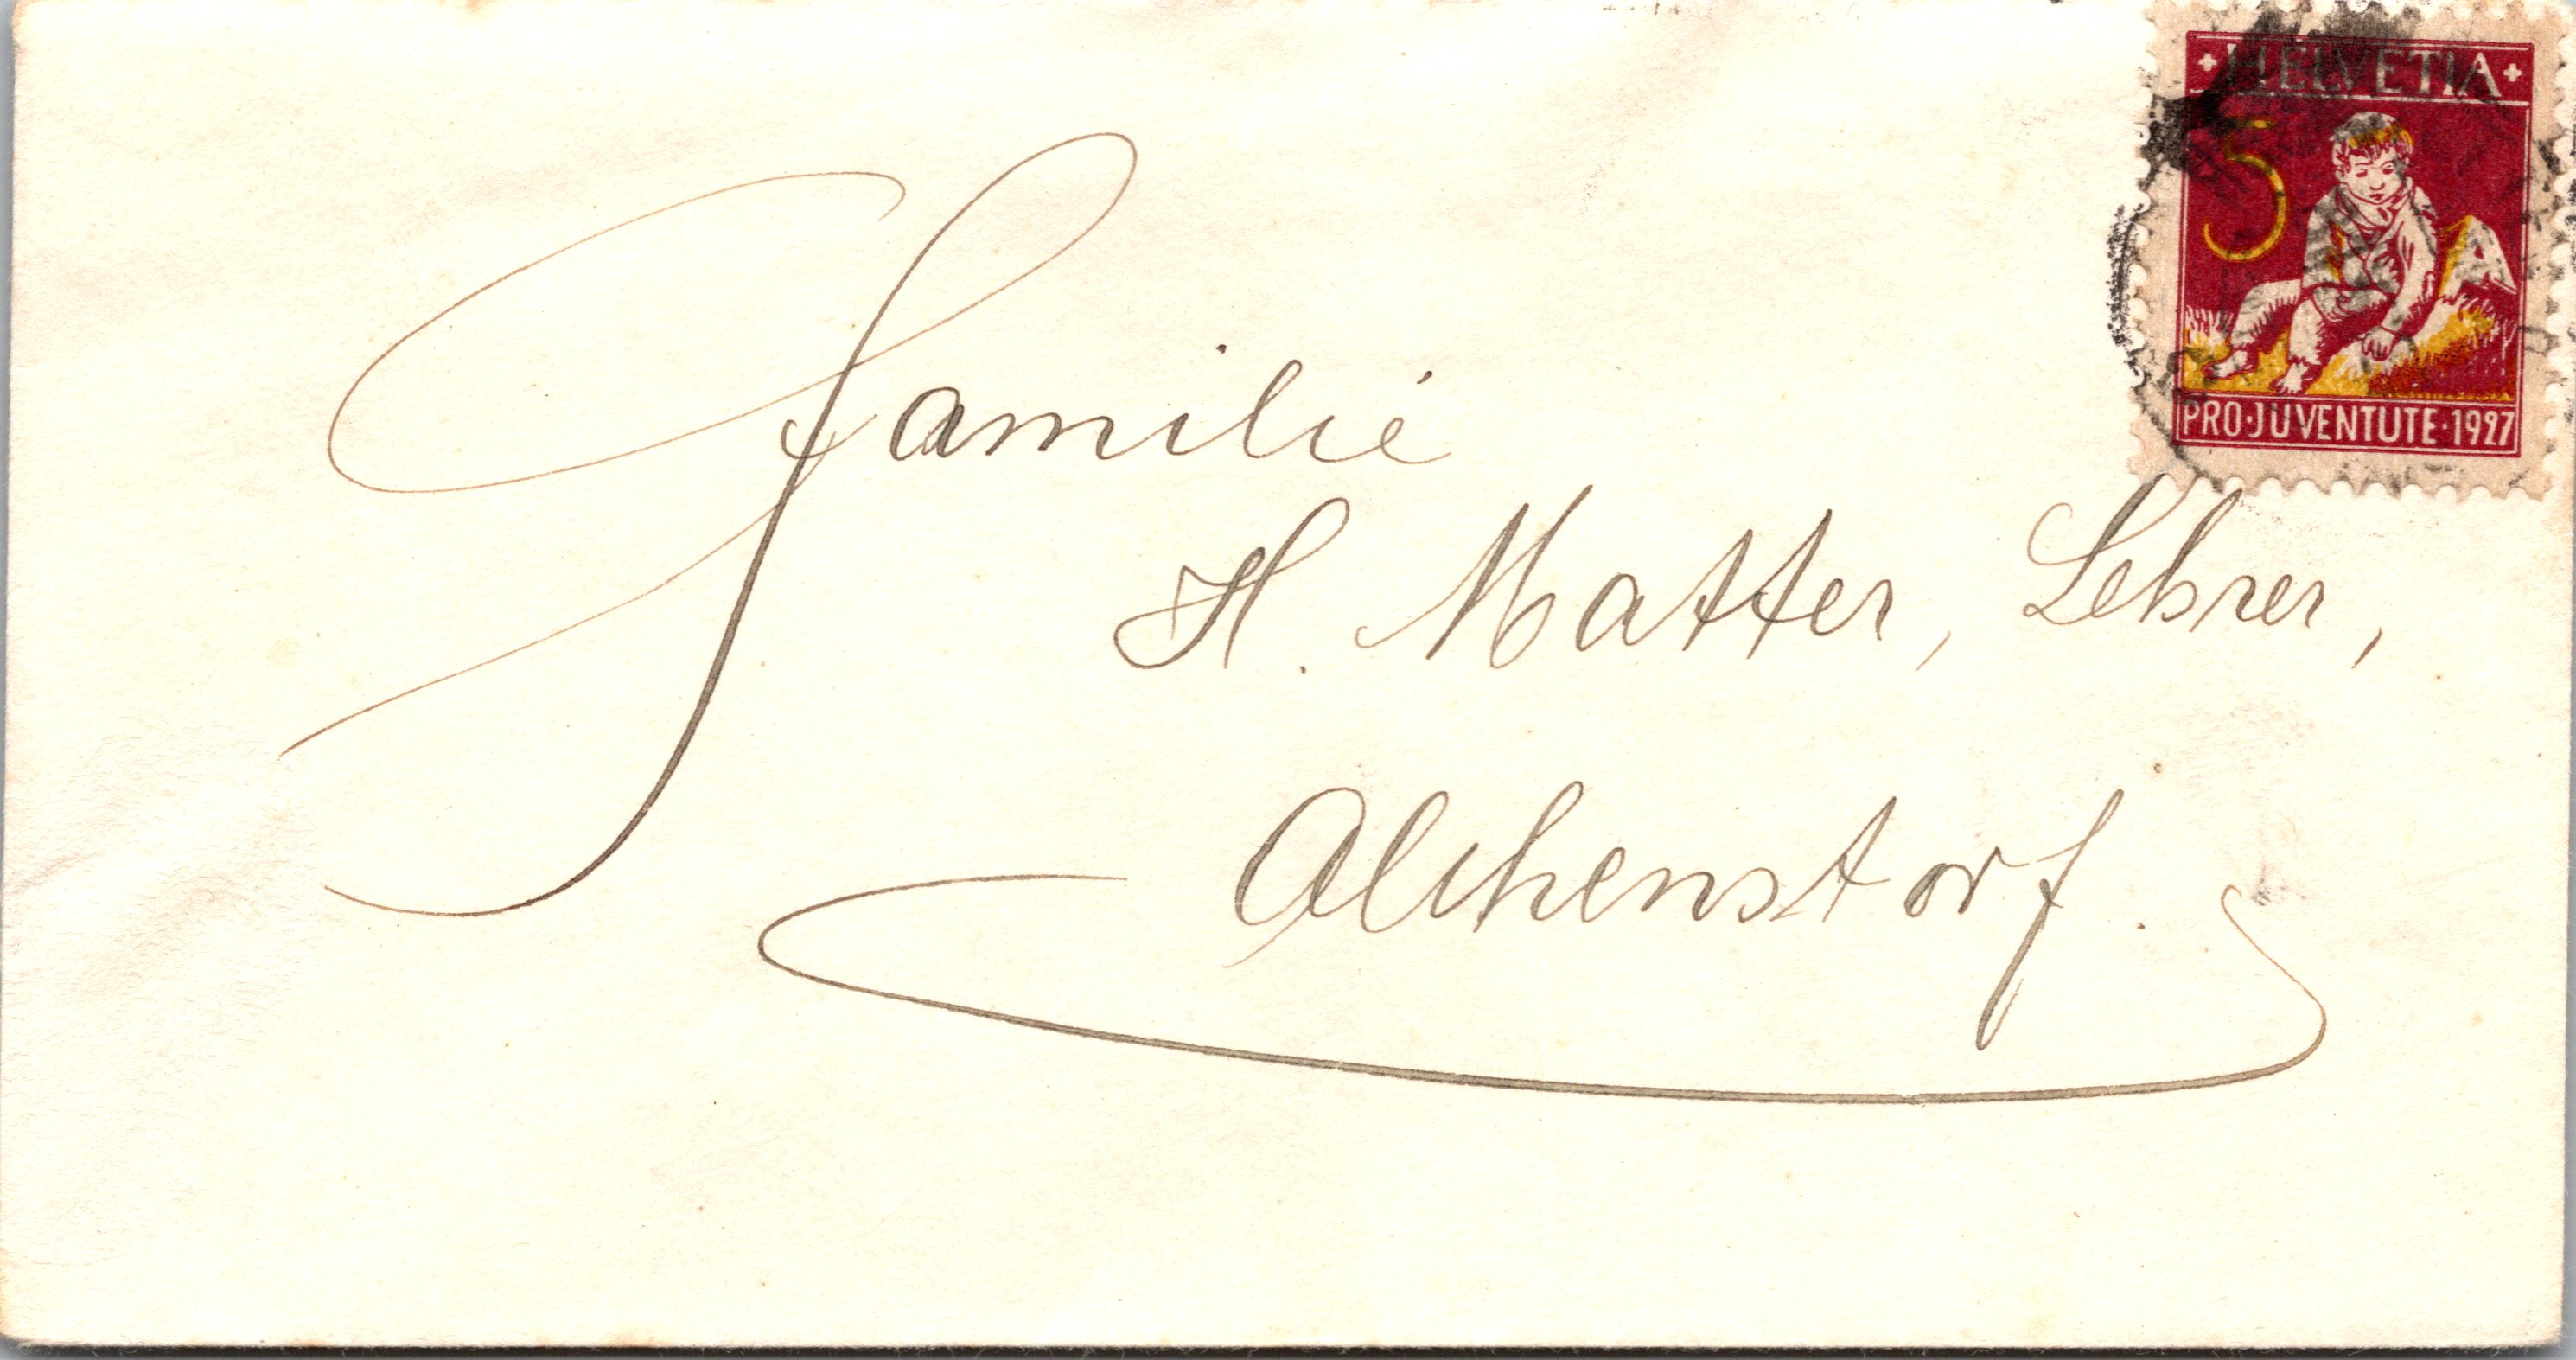 + HELVETIA +
5
PRO·JUVENTUTE·1927
Familie
H. Matter, Lehrer,
Alchenstorf.